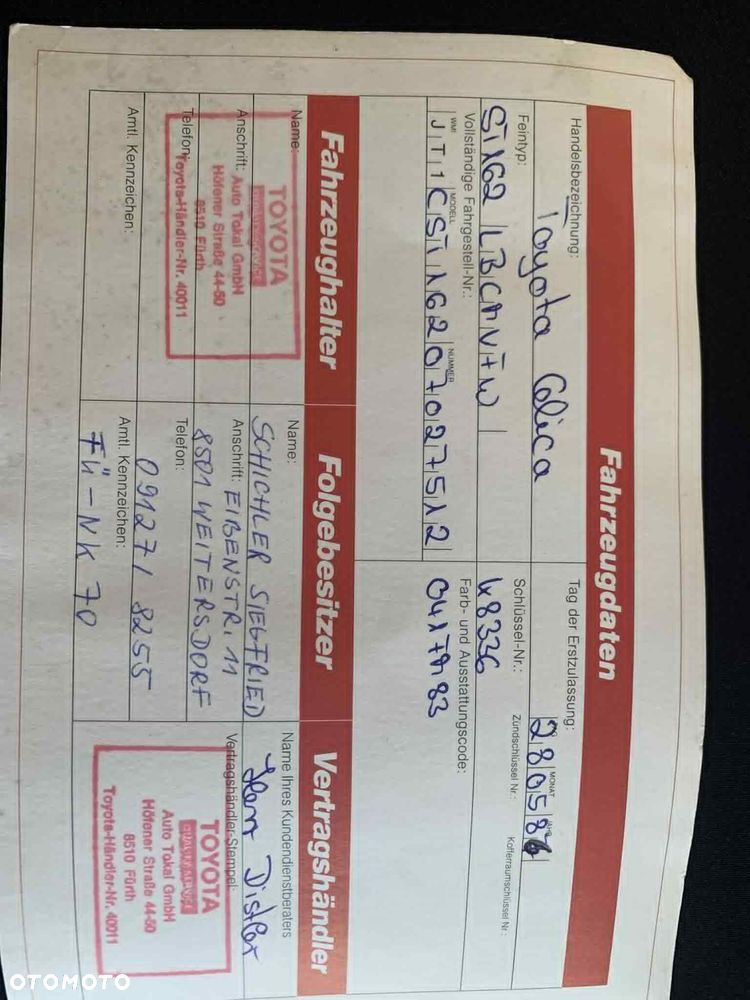 Fahrzeugdaten
Handelsbezeichnung:
Toyota Celica
Tag der Erstzulassung:
MONAT
280586
Feintyp:
ST162 LBCMVTW
Schlüssel-Nr.:
Zündschlüssel Nr.:
Kofferraumschlüssel Nr.:
48336
Vollständige Fahrgestell-Nr.:
WMI MODELL NUMMER
JT1CST16207027512
Farb- und Ausstattungscode:
Fahrzeughalter
Name:
Anschrift:
Telefon:
Amtl. Kennzeichen:
TOYOTA
Auto Tokal GmbH
Höfener Straße 44-50
8510 Fürth
Toyota-Händler-Nr. 40011
Folgebesitzer
Name:
SCHICHLER SIEGFRIED
Anschrift: EIBENSTR. 11
8501 WEITERSDORF
Telefon:
09127 / 8255
Amtl. Kennzeichen:
FÜ-NK 70
Vertragshändler
Name Ihres Kundendienstberaters
Herr Distler
Vertragshändler-Stempel:
TOYOTA
Auto Tokal GmbH
Höfener Straße 44-50
8510 Fürth
Toyota-Händler-Nr. 40011
OTOMOTO